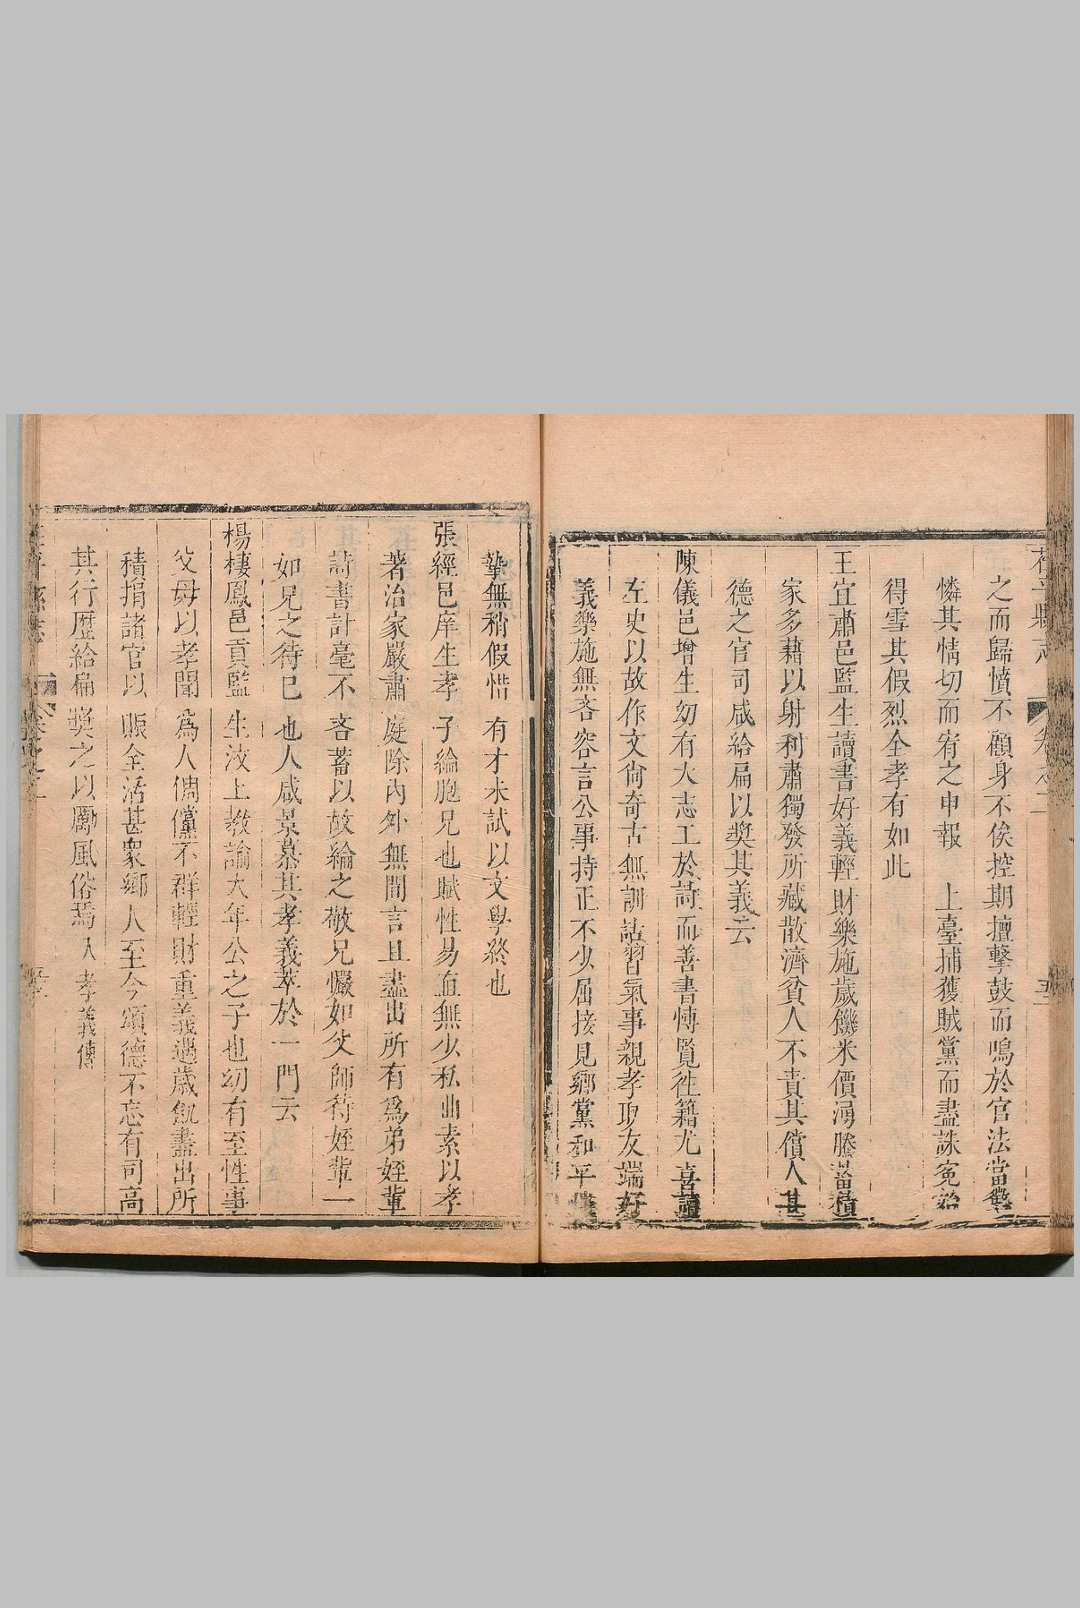 縣志
之而歸憤不顧身不俟控期擅擊鼓而鳴於官法當斃
憐其情切而宥之申報　上臺捕獲賊黨而盡誅寃始
得雪其假烈全孝有如此
王宜肅邑監生讀書好義輕財樂施歲饑米價湧騰蓄積
家多藉以射利肅獨發所藏散濟貧人不責其償人甚
德之官司咸給扁以奬其義云
陳儀邑增生幼有大志工於詩而善書愽覧徃籍尤喜讀
左史以故作文尚奇古無訓詁習氣事親孝取友端好
義樂施無吝容言公事持正不少屈接見鄉黨和平
摯無稍假惜有才未試以文學終也
張經邑庠生孝子綸胞兄也賦性易直無少私曲素以孝
著治家嚴肅庭除內外無間言且盡出所有為弟姪輩
詩書計毫不吝蓄以故綸之敬兄儼如父師待姪輩一
如兄之待已也人咸景慕其孝義萃於一門云
楊棲鳳邑貢監生汶上敎諭大年公之子也幼有至性事
父母以孝聞為人倜儻不群輕財重義遇歲飢盡出所
積捐諸官以賑全活甚衆鄉人至今頌德不忘有司高
其行歴給扁奬之以勵風俗焉入孝義傳